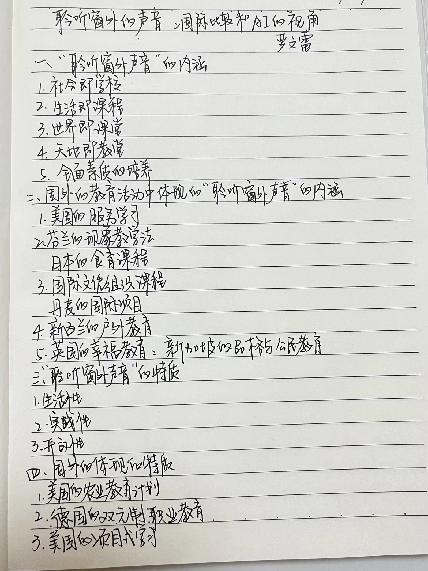 聆听窗外的声音:国际比较和AI的视角
罗文蕾
一、"聆听窗外声音"的内涵
1.社会即学校
2.生活即课程
3.世界即课堂
4.天地即教室
5.全面素质的培养
二、国外的教育活动中体现的"聆听窗外声音"的内涵
1.美国的服务学习
2.芬兰的现象教学法
日本的食育课程
3.国际文凭组织课程
丹麦的国际项目
4.新西兰的户外教育
5.英国的幸福教育:新加坡的品格与公民教育
三、"聆听窗外声音"的特质
1.生活性
2.实践性
3.开放性
四、国外的体现和特质
1.美国的农业教育计划
2.德国的双元制职业教育
3.美国的项目式学习